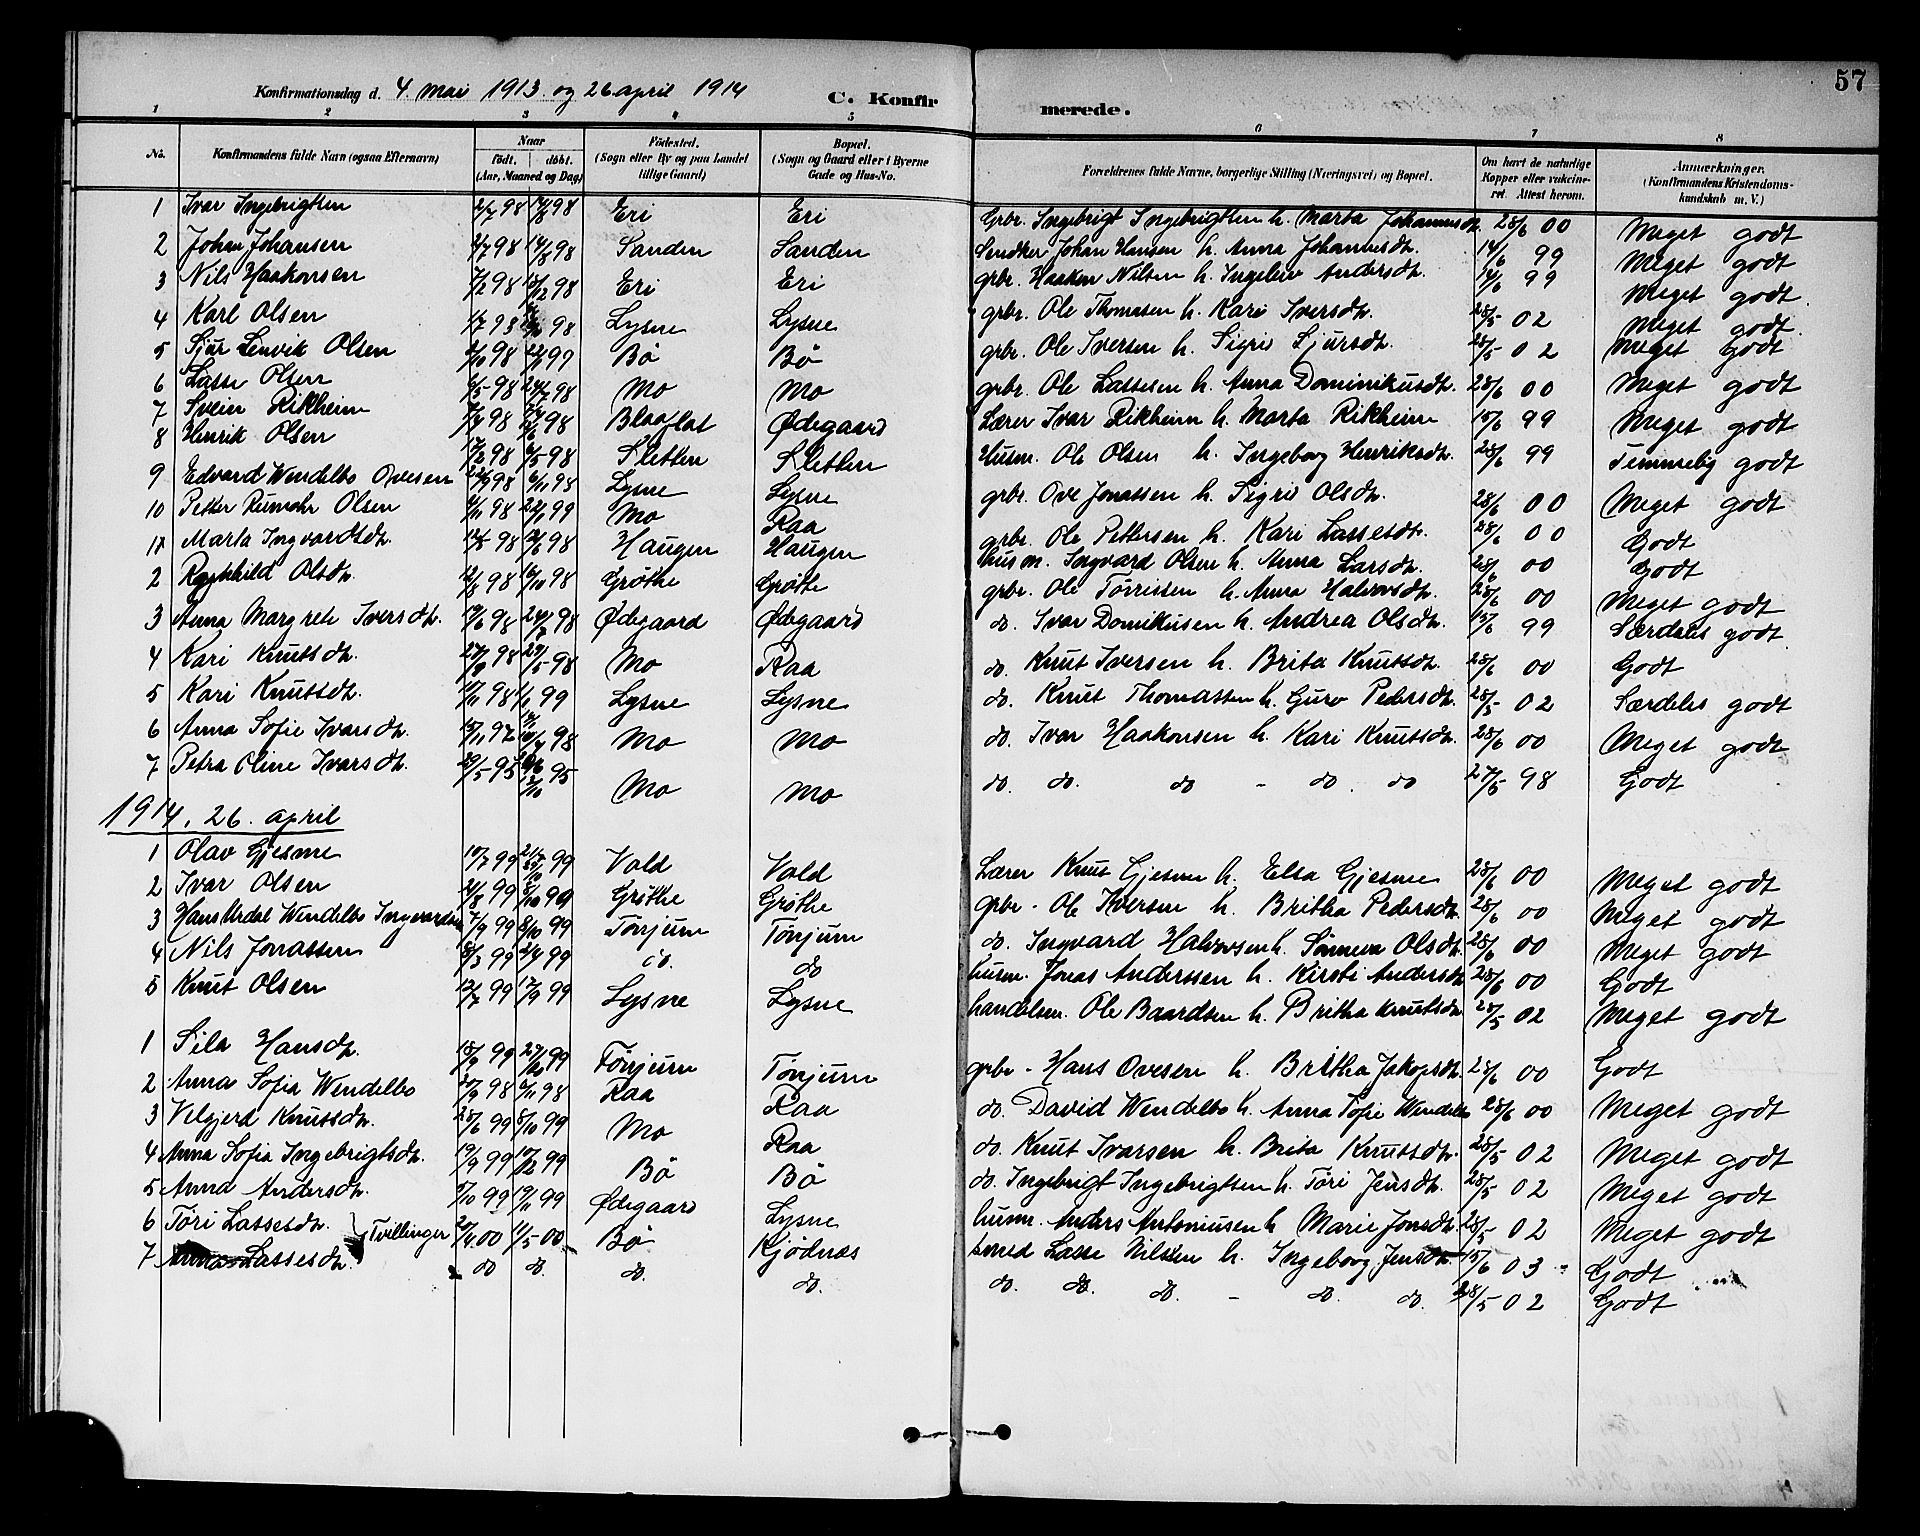 57
Konfirmationsdag d. 4 mai 1913 og 26 april 1914 C. Konfirmerede.
1 2 3 4 5 6 7 8
No. Konfirmandens fulde Navn (ogsaa Efternavn) Naar födt. döbt. (Aar, Maaned og Dag) Födested. (Sogn eller By og paa Landet tillige Gaard) Bopæl. (Sogn og Gaard eller i Byerne Gade og Hus-No. Forældrenes fulde Navne, borgerlige Stilling (Næringsvei) og Bopæl. Om havt de naturlige Kopper eller vakcineret. Attest herom. Anmærkninger. (Konfirmandens Kristendomskundskab m. V.)
1 Ivar Ingebrigtsen 98 98 Eri Eri Gbr. Ingebrigt Ingebrigtsen h. Marta Johannesdt. 28/6 00 Meget godt
2 Johan Johansen 98 14/8 98 Sanden Sanden Johan Hansen h. Anna Johannesdt. 14/6 99 Meget godt
3 Nils Haakonsen 98 98 Eri Eri gbr. Haakon Nilsen h. Ingeleiv Andersdt. 14/6 99 Meget godt
4 Karl Olsen 98 98 Lysne Lysne grbr. Ole Thomasen h. Kari Iversdt. 28/5 02 Meget godt
5 Sjur Lenvik Olsen 98 99 Bö Bö grbr. Ole Iversen h. Sigrid Sjursdt. 28/5 02 Meget godt
6 Lasse Olsen 98 98 Mo Mo grbr. Ole Lassesen h. Anna Dominikusdt. 28/6 00 Meget godt
7 Svein Rikheim 98 98 Blaaflat Ødegaard Lærer Ivar Rikheim h. Marta Rikheim 15/6 99 Meget godt
8 Henrik Olsen 17/2 98 98 Sletten Sletten Husm. Ole Olsen h. Ingeborg Henriksdt. 28/6 99 Temmelig godt
9 Edvard Wendelbo Ovesen 98 98 Lysne Lysne grbr. Ove Jonassen h. Sigrid Olsdt. 28/6 00 Meget godt
10 Petter Rumohr Olsen 98 99 Mo Raa grbr. Ole Pettersen h. Kari Lassesdt. 28/6 00 Godt
1 Marta Ingvardsdt. 98 98 Haugen Haugen husm. Ingvard Olsen h. Anna Larsdt. 28/6 00 Godt
2 Ragnhild Olsdt. 12/8 98 16/10 98 Gröthe Gröthe grbr. Ole Törrisen h. Anna Halvorsdt. 28/6 00 Meget godt
3 Anna Margrete Iversdt. 98 98 Ødegaard Ødegaard do. Ivar Domikusen h. Andrea Olsdt. 15/6 99 Særdeles godt
4 Kari Knutsdt. 98 98 Mo Raa do. Knut Iversen h. Brita Knutsdt. 28/6 00 Godt
5 Kari Knutsdt. 98 99 Lysne Lysne do. Knut Thomassen h. Guro Pedersdt. 28/5 02 Særdeles godt
6 Anna Sofie Ivarsdt. 97 98 Mo Mo do. Ivar Haakonsen h. Kari Knutsdt. 28/6 00 Meget godt
7 Petra Oline Ivarsdt. 29/5 95 95 Mo Mo do do. do - do. do 27/5 98 Godt
1914. 26. april
1 Olav Gjesme 10/7 99 99 Vold Vold Lærer Knut Gjesme h. Elsa Gjesme 28/6 00 Meget godt
2 Ivar Olsen 99 8/10 99 Gröthe Gröthe grbr. Ole Iversen h. Britha Pedersdt. 28/6 00 Meget godt
3 Hans Urdal Wendelbo Ingvardsen 7/9 99 8/10 99 Tönjum Tönjum do. Ingvard Halvorsen h. Sönneva Olsdt. 28/6 00 Meget godt
4 Nils Jonassen 99 2/4 99 do. do husm. Jonas Anderssen h. Kirsti Andersdt. 28/6 00 Godt
5 Knut Olsen 12/7 99 17/9 99 Lysne Lysne handelsm. Ole Baardsen h. Britha Knutsdt. 28/5 02 Meget godt
1 Sila Hansdt. 99 99 Tönjum Tönjum grbr. Hans Ovesen h. Britha Jakopsdt. 28/6 00 Godt
2 Anna Sofia Wendelbo 98 98 Raa Raa do. David Wendelbo h. Anna Sofie Wendelbo 28/6 00 Meget godt
3 Velgjerd Knutsdt. 28/6 99 8/10 99 Mo Raa do. Knut Ivarsen h. Brita Knutsdt. 28/5 02 Meget godt
4 Anna Sofia Ingebrigtsdt. 19/9 99 99 Bö Bö do. Ingebrigt Ingebrigtsen h. Töri Jensdt. 28/5 02 Meget godt
5 Anna Andersdt. 99 99 Ødegaard Lysne husm. Anders Antoniusen h. Marie Jonsdt. 28/5 02 Meget godt
6 Töri Lassesdt. Tvillinger 20/4 00 11/5 00 Bö Kjödnæs Lasse Nilssen h. Ingeborg Jensdt. 15/6 03 Godt
7 Anna Lassesdt. do do. do. do. do. do. do. - do. do. 28/5 02 Godt